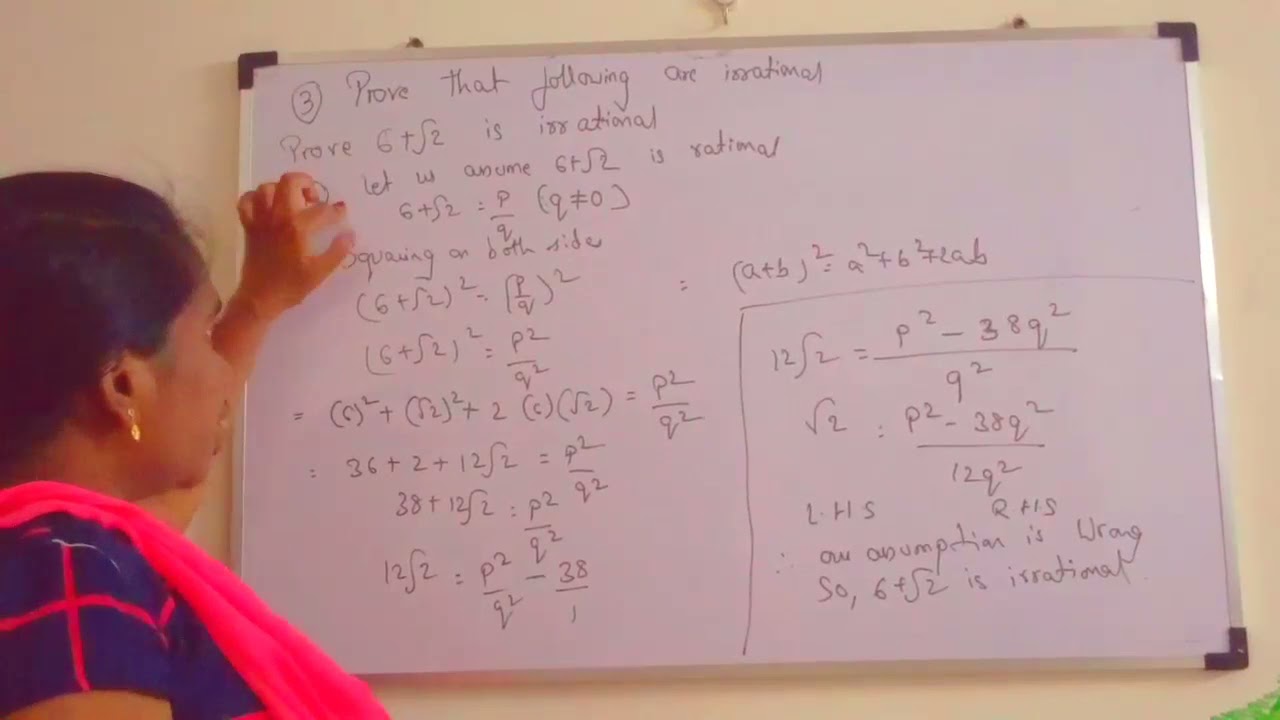 ③ Prove that following are irrational
Prove 6+√2 is irrational
Let us assume 6+√2 is rational
6+√2 = p/q (q≠0)
Squaring on both side
(6+√2)² = (p/q)²
(6+√2)² = p²/q²
= (6)² + (√2)² + 2 (6)(√2) = p²/q²
= 36 + 2 + 12√2 = p²/q²
38 + 12√2 = p²/q²
12√2 = p²/q² - 38/1
= (a+b)² = a²+b²+2ab
12√2 = p² - 38q² / q²
√2 = p² - 38q² / 12q²
L.H.S R.H.S
∴ our assumption is Wrong
So, 6+√2 is irrational.